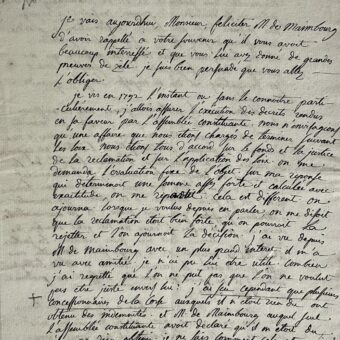 je vais aujourd'hui Monsieur feliciter M de Maimbourg
d'avoir rappellé a votre souvenir qu'il vous avait
beaucoup interressé et que vous lui avez donné de grandes
preuves de zele. je suis bien persuadé que vous allez
l'obliger.
je vis en 1792 l'instant ou sans le connoitre parti
culierement, j'allois assurer l'execution des decrets rendus
en sa faveur par l'assemblée constituante. nous n'envisagions
que une affaire que nous etions chargés de terminer suivant
les loix. nous etions tous d'accord sur le fonds et la justice
de la reclamation et sur l'application des loix. on me
demanda l'evaluation fixe de l'objet. sur ma reponse
qui determinoit une somme assés forte et calculée avec
exactitude, on me repartit cela est different on
ajourna. lorsque je voulus depuis en parler, on me disoit
que la reclamation etoit bien forte, qu'on pourroit la
rejetter et l'on ajournoit la decision. j'ai vu depuis
M de Maimbourg avec un plus grand interet. il m'a
vu avec amitié. je n'ai pu lui etre utile. combien
j'ai regretté que l'on ne put pas que l'on ne voulut
pas etre juste envers lui: j'ai sçu cependant que plusieurs
+ concessionnaires de la Corse auxquels il n'etoit rien du ont
obtenu des indemnités et M de Maimbourg auquel seul
l'assemblée constituante avoit declaré qu'il m etoit du